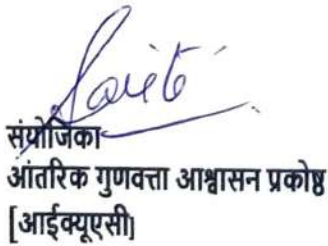 संयोजिका
आंतरिक गुणवत्ता आश्वासन प्रकोष्ठ
[आईक्यूएसी]